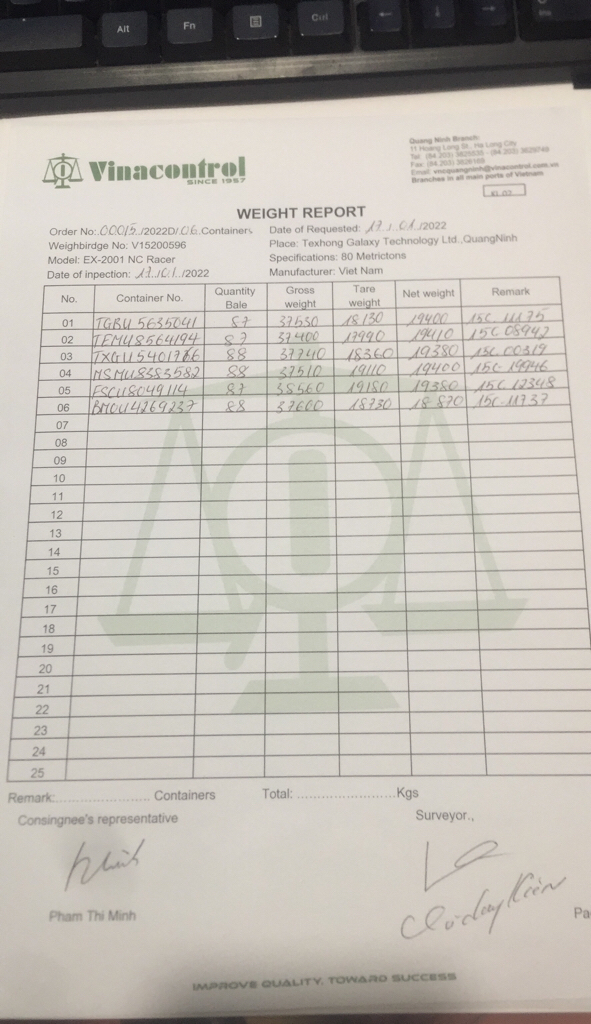 Alt
Fn
Ctrl
Vinacontrol
SINCE 1957
Quang Ninh Branch:
11 Hoang Long St., Ha Long City
Branches in all main ports of Vietnam
WEIGHT REPORT
Order No: 00015/2022D/06 Containers
Date of Requested: 17/01/2022
Weighbirdge No: V15200596
Place: Texhong Galaxy Technology Ltd.,QuangNinh
Model: EX-2001 NC Racer
Specifications: 80 Metrictons
Date of inpection: 17/01/2022
Manufacturer: Viet Nam
No. Container No. Quantity Bale Gross weight Tare weight Net weight Remark
01 TGBU 5635041 87 37530 18130 19400 15C 11175
02 TEMU8564194 87 37400 17990 19410 15C 08942
03 TXGU5401766 88 37740 18360 19380 15C 00319
04 MSMU8383582 88 37510 19110 19400 15C 19946
05 FSCU8049114 87 38560 19180 19380 15C 12348
06 BMOU4269237 88 37600 18730 18870 15C 11737
07
08
09
10
11
12
13
14
15
16
17
18
19
20
21
22
23
24
25
Remark:.................... Containers Total: ......................Kgs
Consingnee's representative
Surveyor.,
Pham Thi Minh
Pa
IMPROVE QUALITY, TOWARD SUCCESS